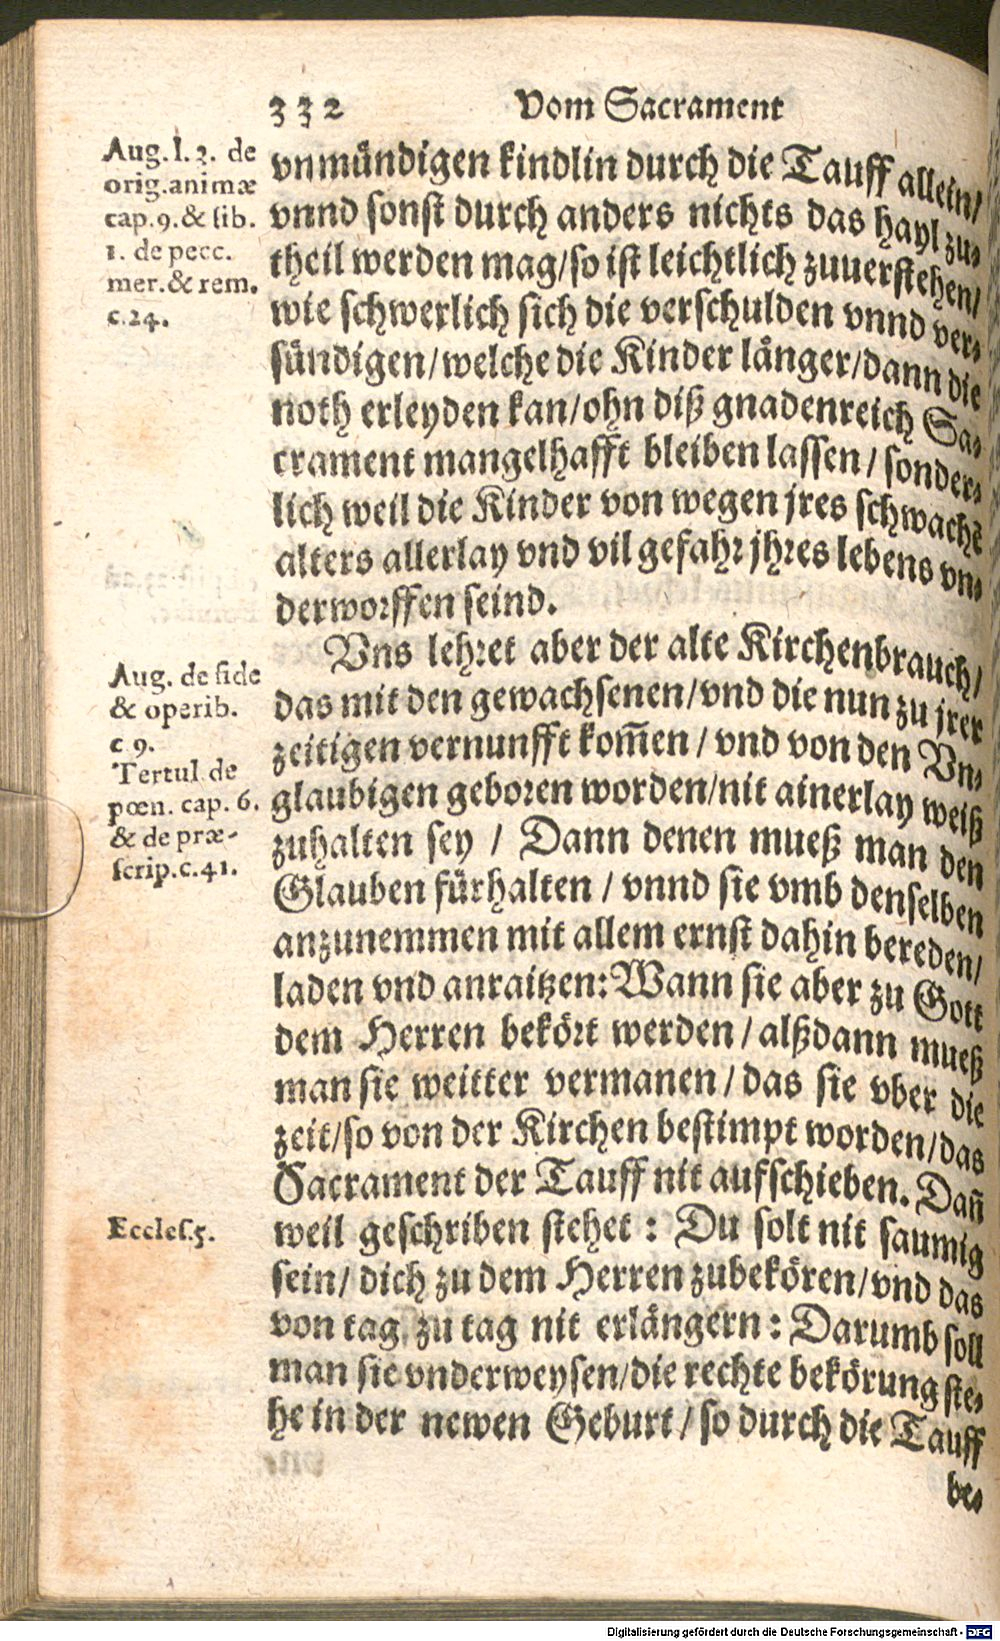 332 Vom Sacrament
Aug. l. 2. de
orig. animæ
cap. 9. & lib.
1. de pecc.
mer. & rem.
c. 24.
vnmündigen kindlin durch die Tauff allein/
vnnd sonst durch anders nichts das hayl zu⸗
theil werden mag/so ist leichtlich zuuerstehen/
wie schwerlich sich die verschulden vnnd ver⸗
sündigen/welche die Kinder länger/dann die
noth erleyden kan/ohn diß gnadenreich Sa⸗
crament mangelhafft bleiben lassen/ sonder⸗
lich weil die Kinder von wegen jres schwachẽ
alters allerlay vnd vil gefahr jhres lebens vn⸗
derworffen seind.
Aug. de fide
& operib.
c 9.
Tertul. de
pœn. cap. 6.
& de præ-
scrip. c. 41.
Vns lehret aber der alte Kirchenbrauch/
das mit den gewachsenen/vnd die nun zu jrer
zeitigen vernunfft kom̃en/ vnd von den Vn⸗
glaubigen geboren worden/nit ainerlay weiß
zuhalten sey / Dann denen mueß man den
Glauben fürhalten / vnnd sie vmb denselben
anzunemmen mit allem ernst dahin bereden/
laden vnd anraitzen: Wann sie aber zu Gott
dem Herren bekört werden/ alßdann mueß
man sie weitter vermanen/ das sie vber die
zeit/so von der Kirchen bestimpt worden/das
Sacrament der Tauff nit aufschieben. Dañ
Eccles. 5.
weil geschriben stehet : Du solt nit saumig
sein/ dich zu dem Herren zubekören/vnd das
von tag zu tag nit erlängern : Darumb soll
man sie vnderweysen/die rechte bekörung ste⸗
he in der newen Geburt/ so durch die Tauff
be⸗
Digitalisierung gefördert durch die Deutsche Forschungsgemeinschaft - DFG